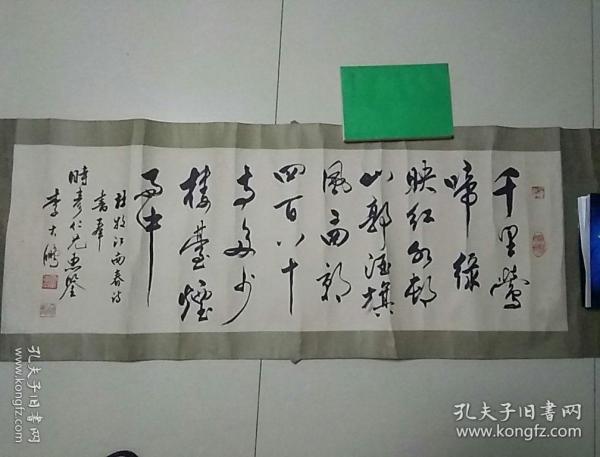 千里鶯
啼綠
映紅水邨
山郭酒旗
風南朝
四百八十
寺多少
樓臺煙
雨中
杜牧江南春诗
書奉
時彥仁兄惠鑒
李大鵬
孔夫子旧书网
www.kongfz.com
孔夫子旧书网
www.kongfz.com